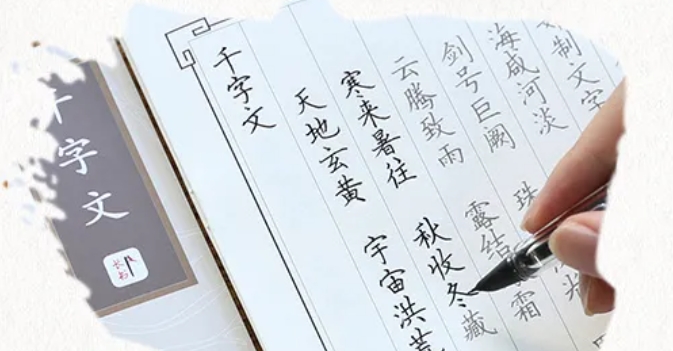 千字文
千字文
天地玄黄 宇宙洪荒
寒来暑往 秋收冬藏
云腾致雨 露结霜
剑号巨阙 珠
海咸河淡
制文字